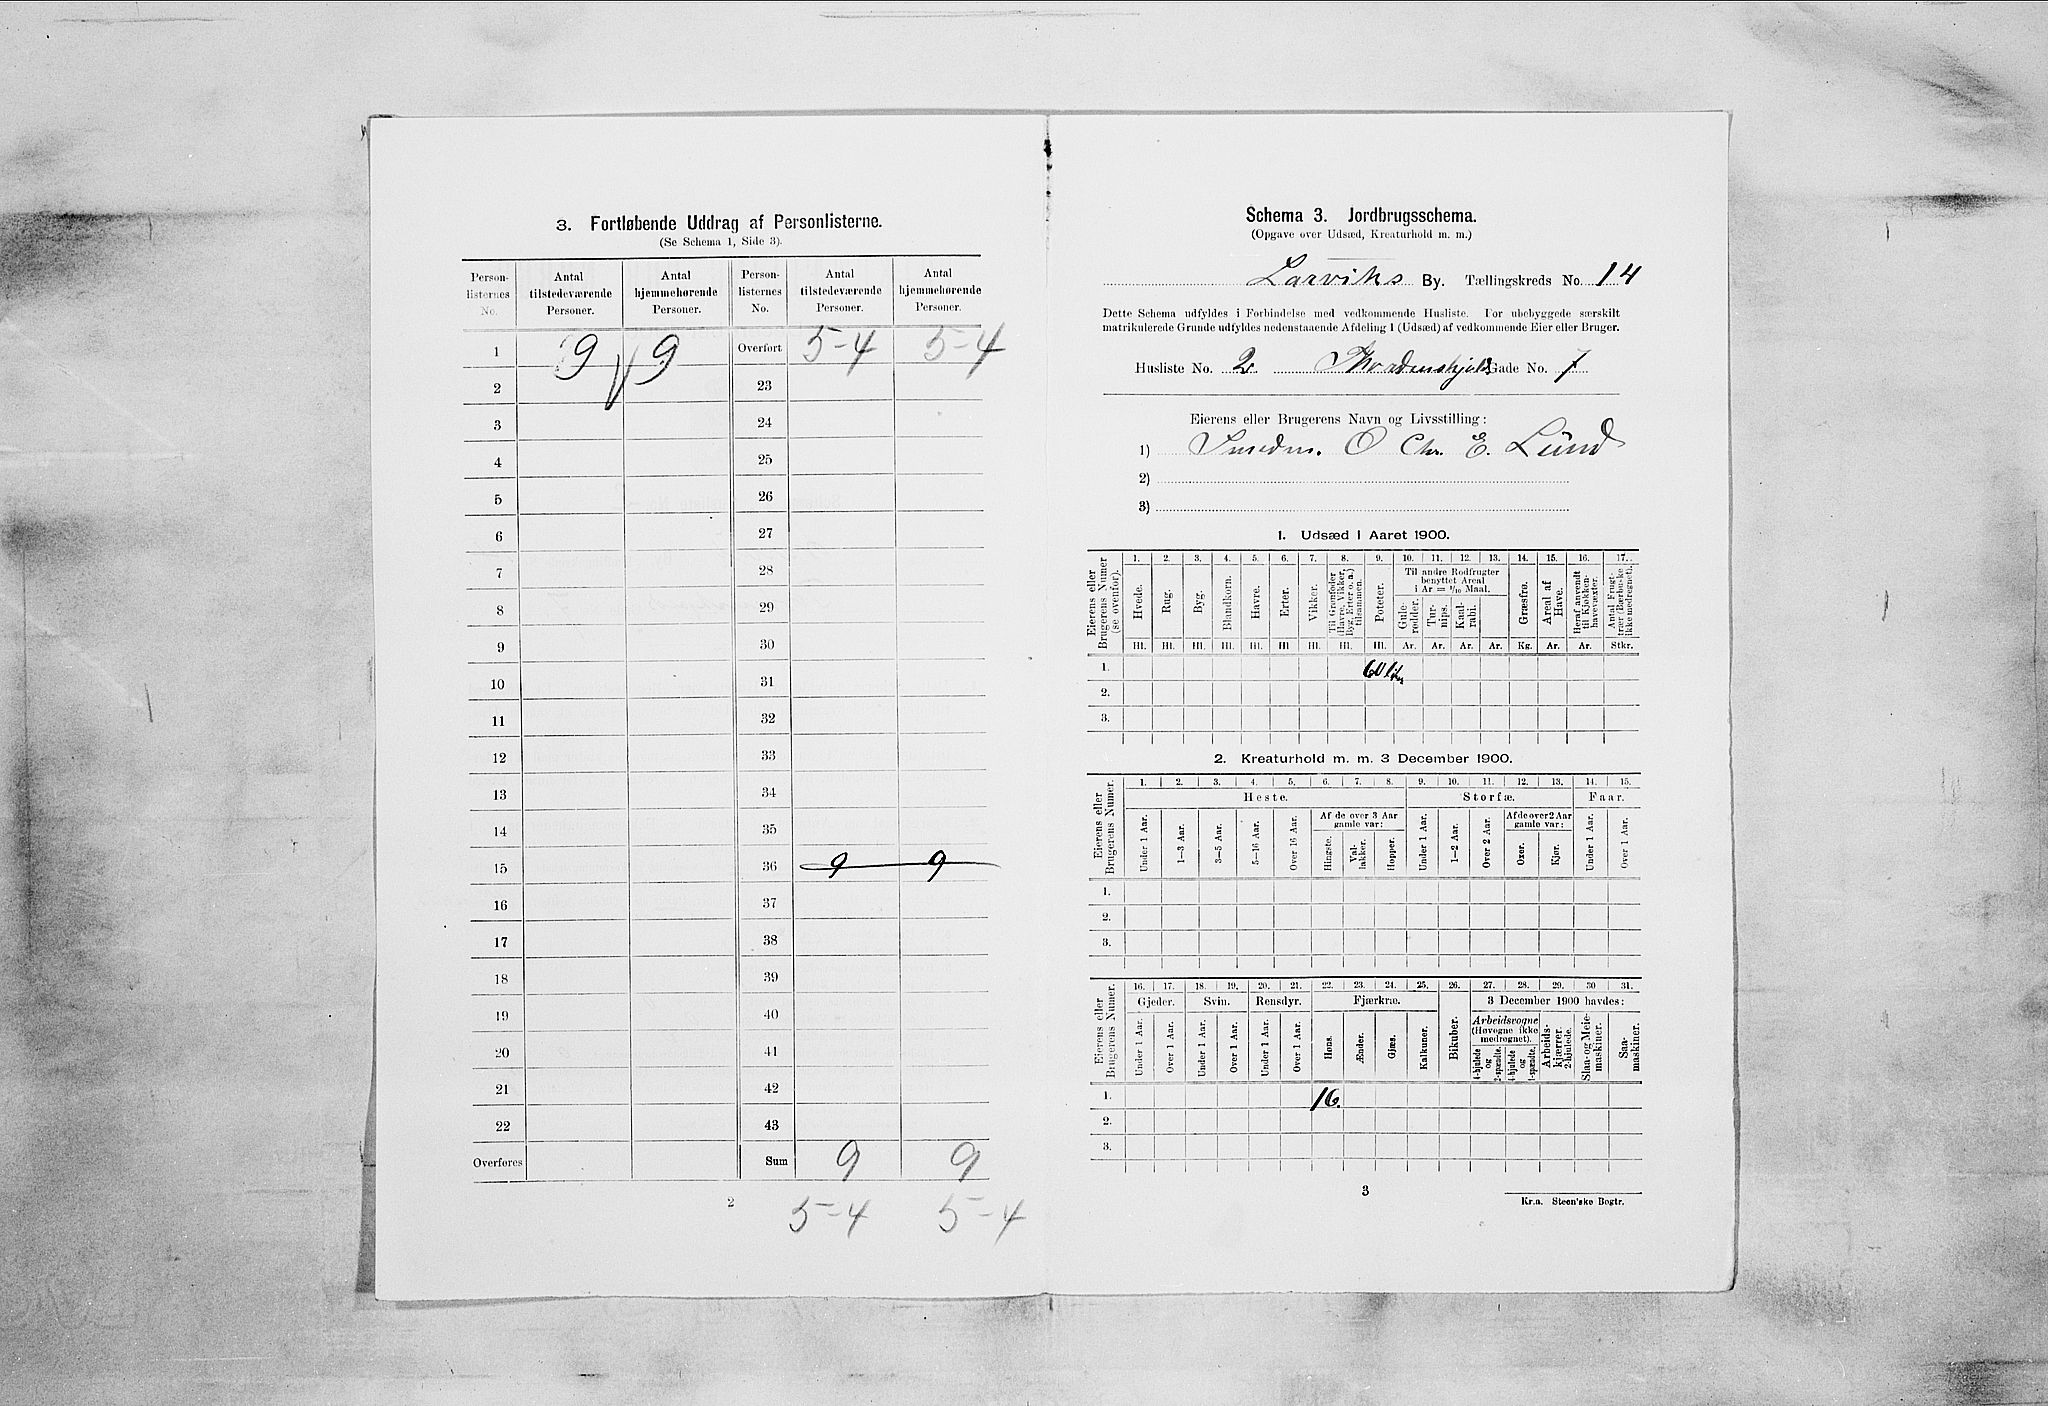 3. Fortløbende Uddrag af Personlisterne.
(Se Schema 1, Side 3).
Person-listernes No. | Antal tilstedeværende Personer. | Antal hjemmehørende Personer. | Person-listernes No. | Antal tilstedeværende Personer. | Antal hjemmehørende Personer.
1 | 9 | 9 | Overført | 5-4 | 5-4
2 | | | 23
3 | | | 24
4 | | | 25
5 | | | 26
6 | | | 27
7 | | | 28
8 | | | 29
9 | | | 30
10 | | | 31
11 | | | 32
12 | | | 33
13 | | | 34
14 | | | 35
15 | | | 36 | 9 | 9
16 | | | 37
17 | | | 38
18 | | | 39
19 | | | 40
20 | | | 41
21 | | | 42
22 | | | 43
Overføres | | | Sum | 9 | 9
2
5-4 5-4
Schema 3. Jordbrugsschema.
(Opgave over Udsæd, Kreaturhold m. m.)
Larviks By. Tællingskreds No. 14
Dette Schema udfyldes i Forbindelse med vedkommende Husliste. For ubebyggede særskilt
matrikulerede Grunde udfyldes nedenstaaende Afdeling 1 (Udsæd) af vedkommende Eier eller Bruger.
Husliste No. 2 Thordenskjolds Gade No. 7
Eierens eller Brugerens Navn og Livsstilling:
1) Smedm. O Chr. E. Lund
2)
3)
1. Udsæd i Aaret 1900.
Eierens eller Brugerens Numer (se ovenfor).
1. 2. 3. 4. 5. 6. 7. 8. 9. 10. 11. 12. 13. 14. 15. 16. 17.
Hvede. Rug. Byg. Blandkorn. Havre. Erter. Vikker. Til Grønfoder (Havre, Vikker, Byg, Erter o. a.) tilsammen. Poteter.
Til andre Rodfrugter benyttet Areal i Ar = 1/10 Maal.
Gulerødder. Turnips. Kaalrabi.
Græsfrø. Areal af Have. Heraf anvendt til Kjøkkenhavevæxter. Antal Frugttrær (Bærbuske ikke medregnet).
Hl. Hl. Hl. Hl. Hl. Hl. Hl. Hl. Hl. Ar. Ar. Ar. Ar. Kg. Ar. Ar. Stkr.
1. 60 lit
2.
3.
2. Kreaturhold m. m. 3 December 1900.
Eierens eller Brugerens Numer.
1. 2. 3. 4. 5. 6. 7. 8. 9. 10. 11. 12. 13. 14. 15.
Heste. Storfæ. Faar.
Under 1 Aar. 1—3 Aar. 3—5 Aar. 5—16 Aar. Over 16 Aar.
Af de over 3 Aar gamle var:
Hingste. Vallakker. Hopper.
Under 1 Aar. 1—2 Aar. Over 2 Aar.
Af de over 2 Aar gamle var:
Oxer. Kjør.
Under 1 Aar. Over 1 Aar.
1.
2.
3.
Eierens eller Brugerens Numer.
16. 17. 18. 19. 20. 21. 22. 23. 24. 25. 26. 27. 28. 29. 30 31.
Gjeder. Svin. Rensdyr. Fjærkræ. 3 December 1900 havdes:
Under 1 Aar. Over 1 Aar. Under 1 Aar. Over 1 Aar. Under 1 Aar. Over 1 Aar. Høns. Ænder. Gjæs. Kalkuner. Bikuber.
Arbeidsvogne (Høvogne ikke medregnet).
4-hjulede og 2-spændte. 4-hjulede og 1-spændte.
Arbeidskjærrer, 2-hjulede. Slaa- og Meiemaskiner. Saamaskiner.
1. 16.
2.
3.
3
Kr.a. Steen'ske Bogtr.